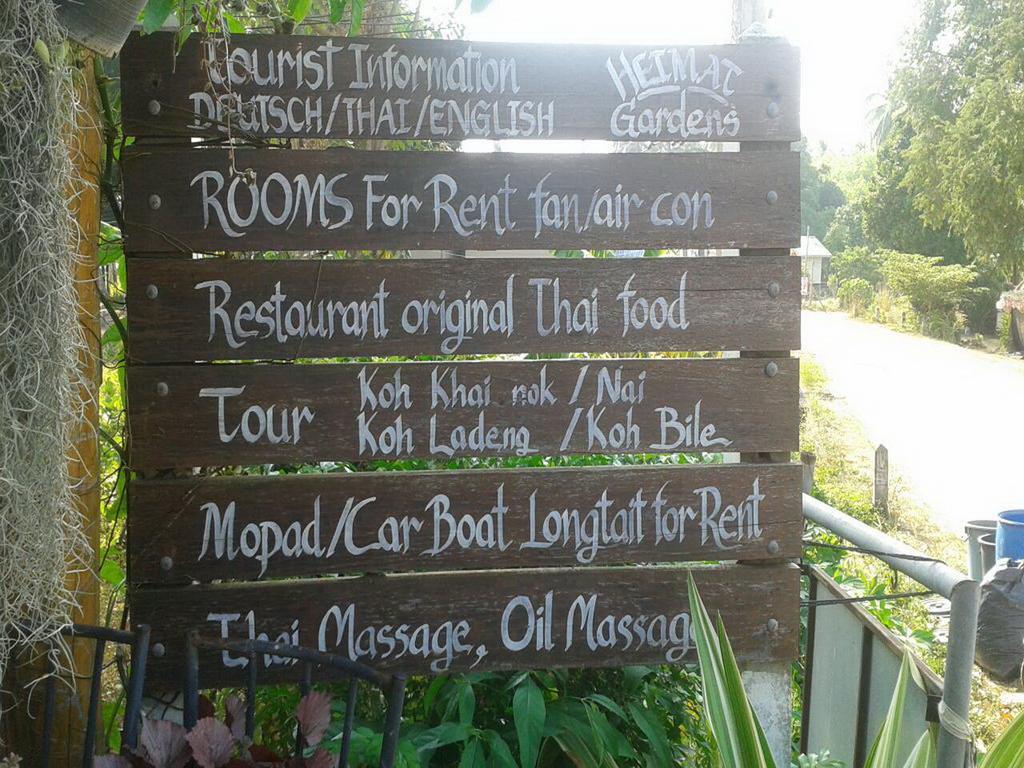 Tourist Information
DEUTSCH/THAI/ENGLISH
HEIMAT
Gardens
ROOMS For Rent fan/air con
Restaurant original Thai food
Tour
Koh Khai nok / Nai
Koh Ladeng / Koh Bile
Mopad/Car Boat Longtait for Rent
Thai Massage, Oil Massage